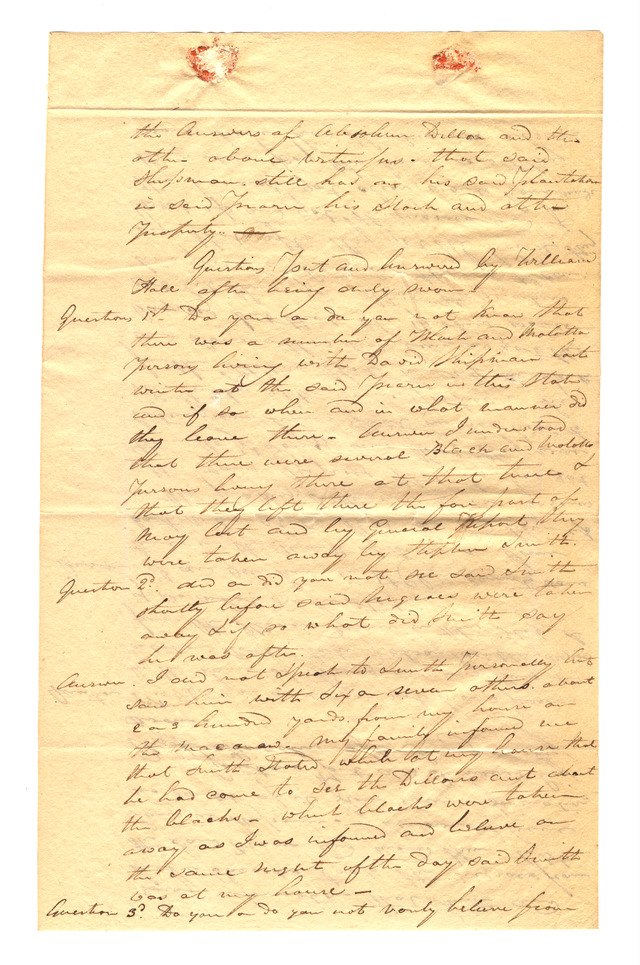 the Answers of Absolum Dillon and the
other above Witnesses. that said
Shipman still has on his said Plantation
in said Mazon his Stock and other
Property.
Questions Put and Answered by William
Hall after being duly sworn.
Question 1st. Do you or do you not know that
there was a number of Black and Molatto
Persons living with David Shipman last
winter at the said in this State
and if so when and in what manner did
they leave there - Answer I understood
that there were several Black and Molatto
Persons living there at that time &
that they left there the fore part of
May last and by General Report they
were taken away by Stephen Smith.
Question 2d. did or did you not see said Smith
shortly before said Negroes were taken
away & if so what did Smith say
he was after.
Answer. I did not speak to Smith Personally but
saw him with six or seven others about
2 or 3 hundred yards from my house on
the Macanaw. My family informed me
that Smith Stated while at my house that
he had come to see the Dillons out about
the blacks - which blacks were taken
away as I was informed and believe on
the same night of the day said Smith
was at my house -
Question 3d. Do you or do you not verily believe from